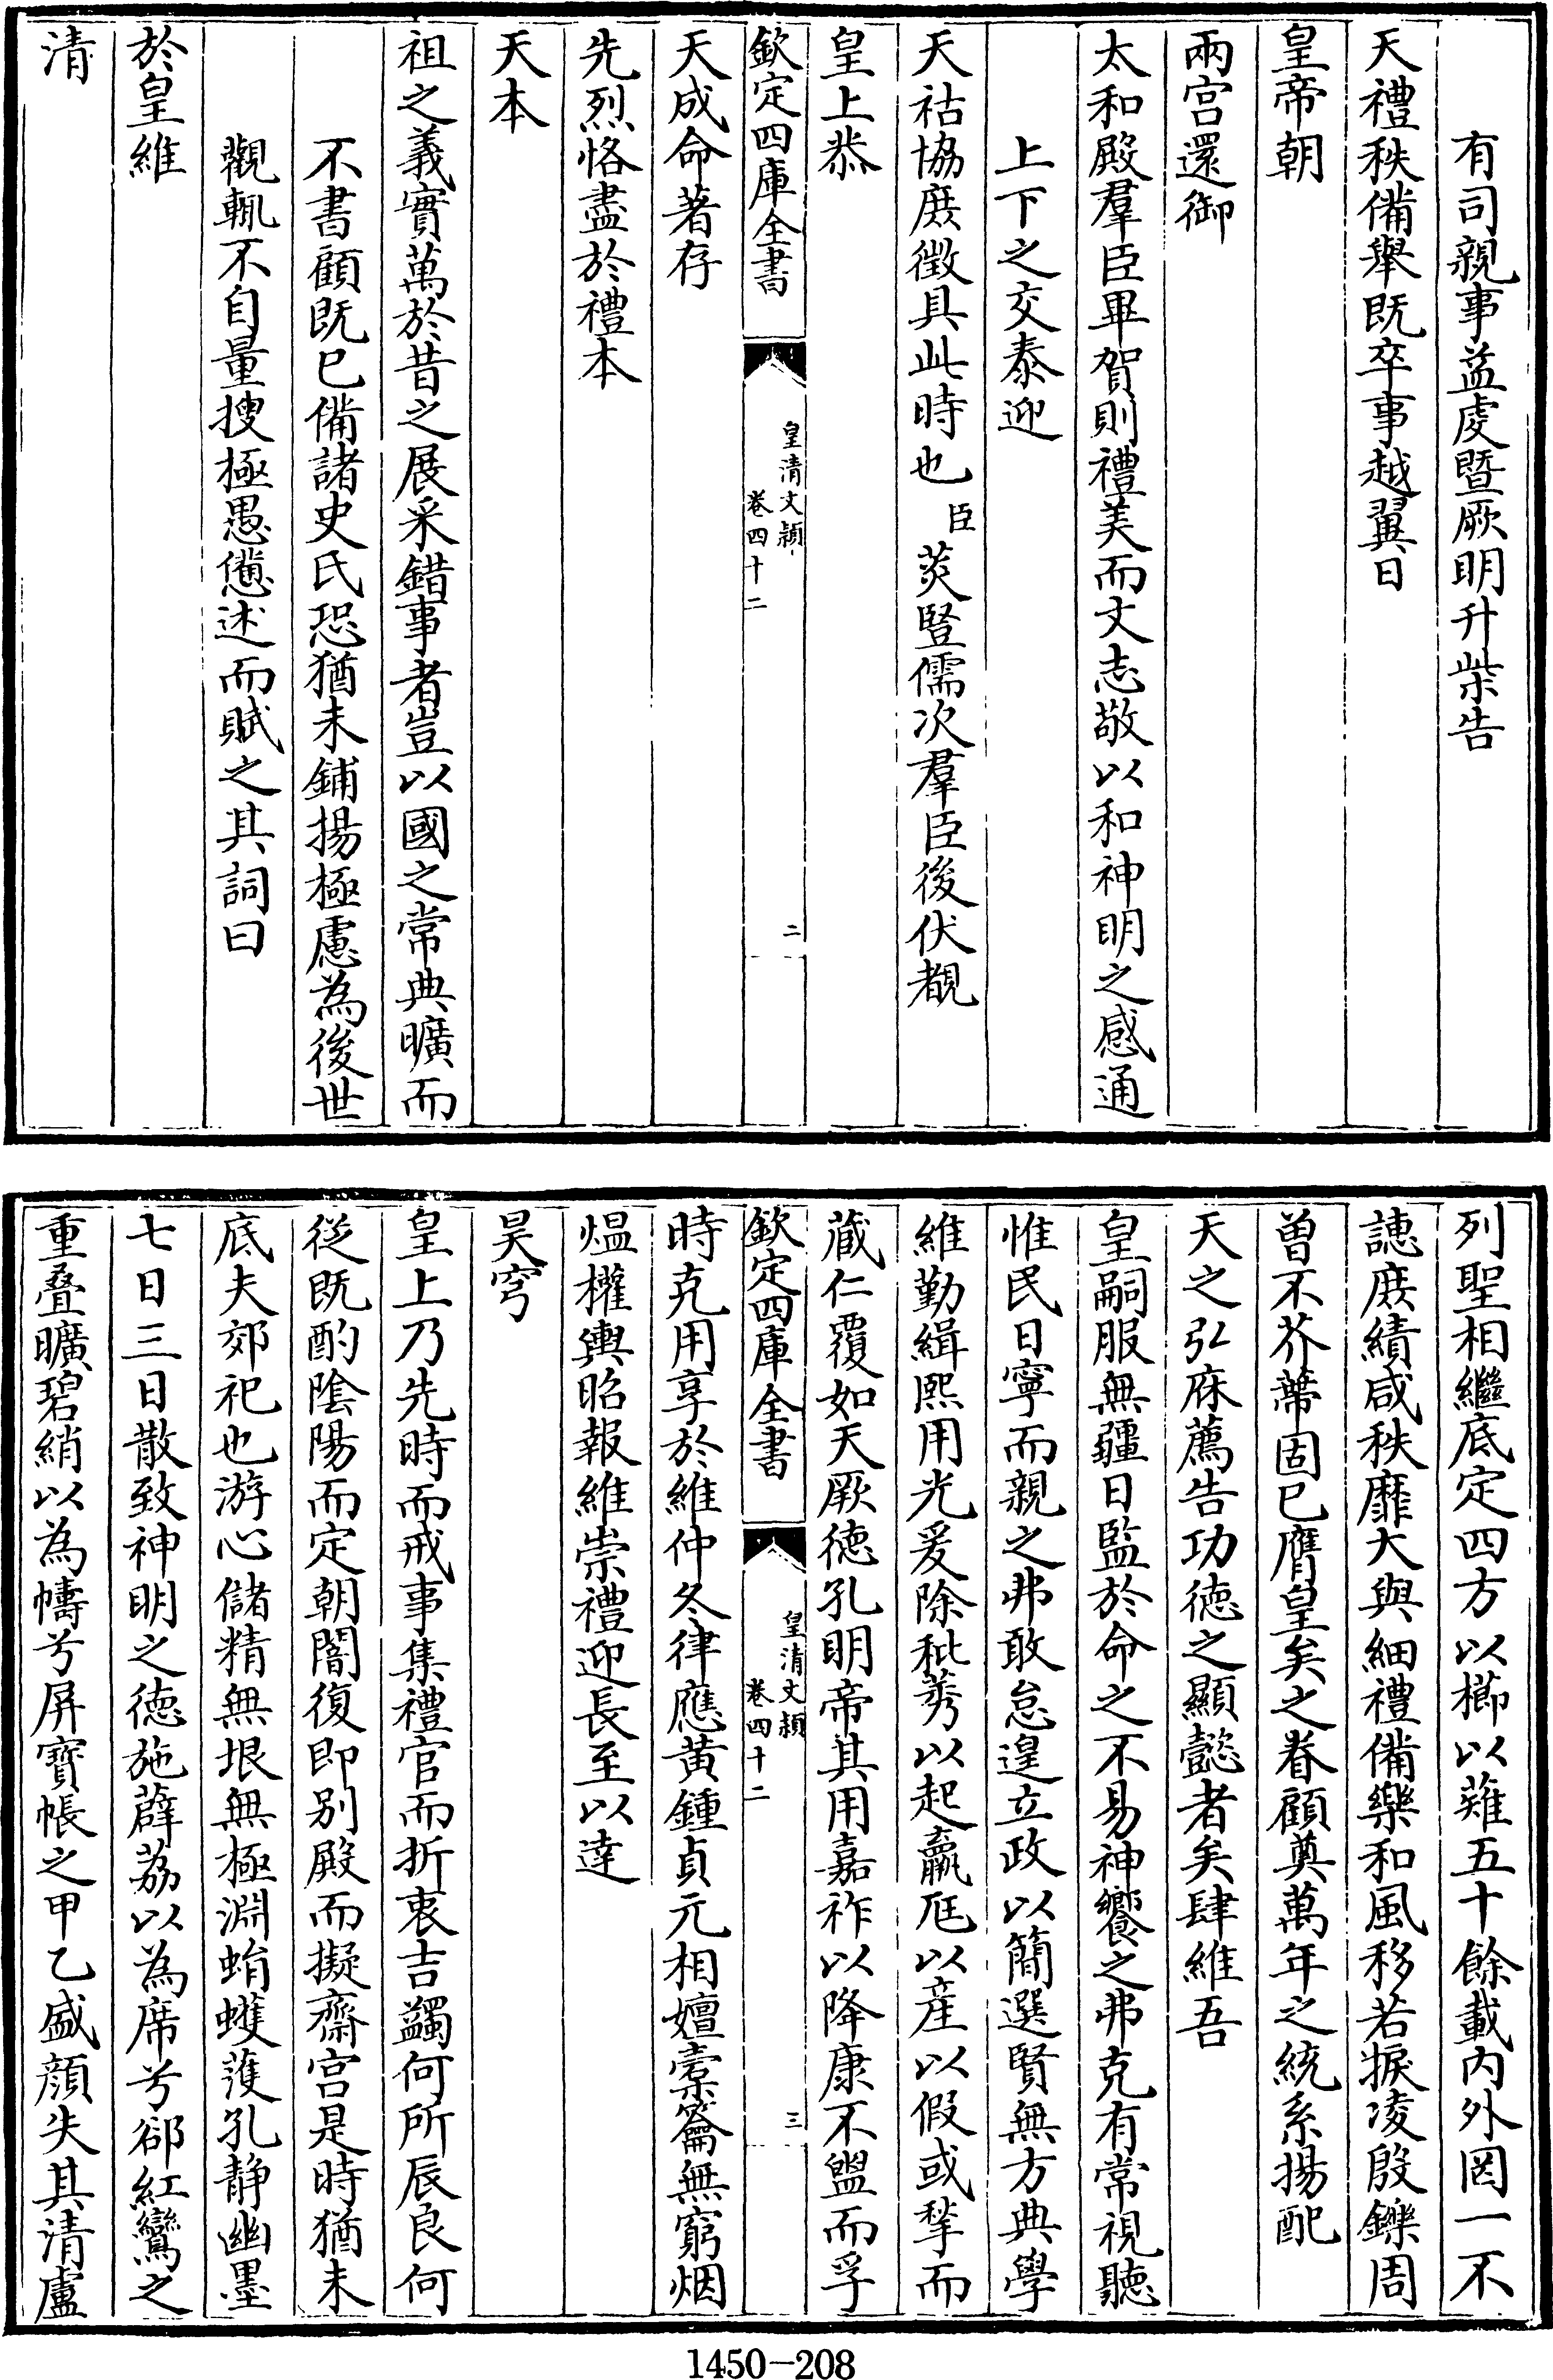 有司親事益虔暨厥明升柴告
天禮秩備舉既卒事越翼日
皇帝朝
兩宫還御
太和殿羣臣畢賀則禮美而文志敬以和神明之感通
上下之交泰迎
天祜協庶徵具此時也臣蒺豎儒次羣臣後伏覩
皇上恭
欽定四庫全書
皇清文穎
卷四十二
二
天成命著存
先烈恪盡於禮本
天本
祖之義實萬於昔之展采錯事者豈以國之常典曠而
不書顧既已備諸史氏恐猶未鋪揚極慮為後世
觀輒不自量搜極愚憊述而賦之其詞曰
於皇維
清
列聖相繼底定四方以櫛以薙五十餘載内外罔一不
譓庶績咸秩靡大與細禮備樂和風移若捩凌殷鑠周
曽不芥蔕固已膺皇矣之眷顧奠萬年之統系揚配
天之弘庥薦告功徳之顯懿者矣肆維吾
皇嗣服無疆日監於命之不易神饗之弗克有常視聽
惟民日寧而親之弗敢怠遑立政以簡選賢無方典學
維勤緝熙用光爰除秕莠以起羸尫以產以假或揫而
藏仁覆如天厥徳孔明帝其用嘉祚以降康不盥而孚
欽定四庫全書
皇清文穎
卷四十二
三
時克用享於維仲冬律應黄鍾貞元相嬗橐籥無窮烟
熅權輿昭報維崇禮迎長至以達
昊穹
皇上乃先時而戒事集禮官而折衷吉蠲何所辰良何
從既酌隂陽而定朝闇復即别殿而擬齋宫是時猶未
底夫郊祀也游心儲精無垠無極淵蜎蠖濩孔静幽墨
七日三日散致神明之徳施薜荔以為席兮郤紅鸞之
重叠曠碧綃以為幬兮屏寶帳之甲乙盛顔失其清盧
1450—208